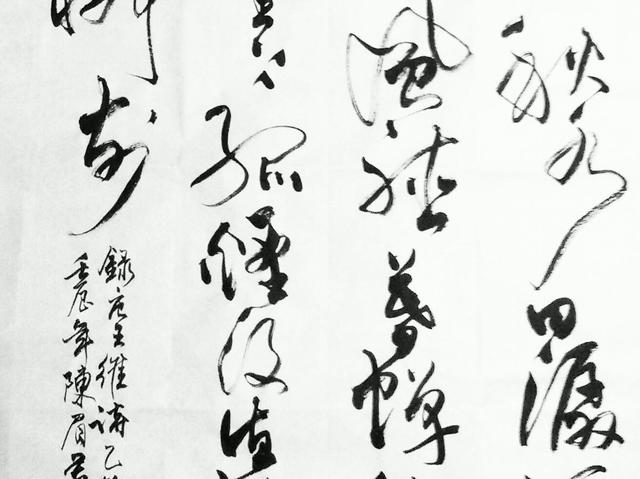 秋水日潺
風聽暮蟬
上孤煙復值
柳前
錄唐王維詩乙
壬辰年陳眉